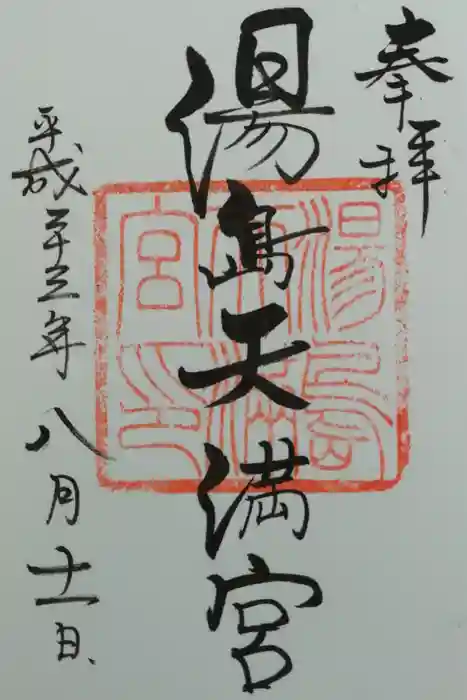 奉拝
湯島天満宮
平成二十三年八月十一日
湯島天満宮印